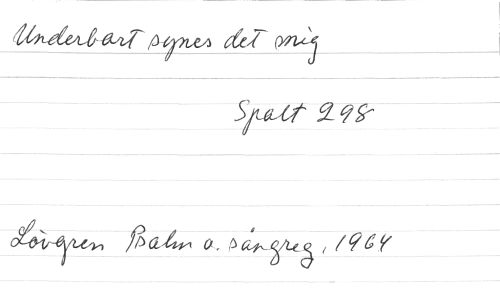 Underbart synes det mig
Spalt 298
Lövgren Psalm o. sångreg, 1964